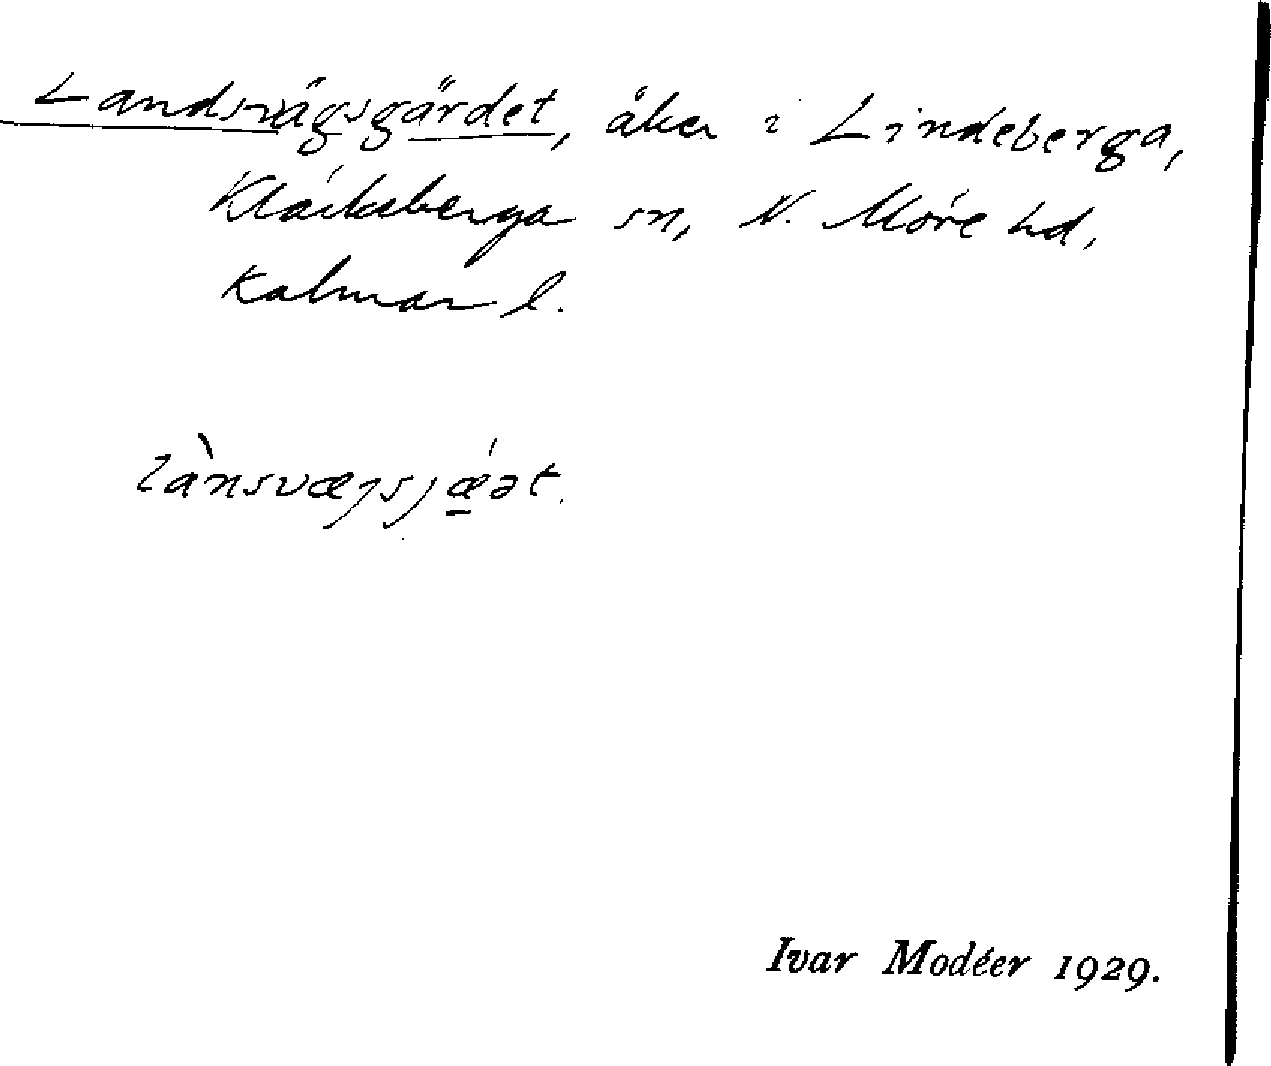 Landsvägsgärdet, åker i Lindeberga,
Kläckeberga sn, N. Möre hd,
Kalmar l.
lànsvæjsjǽət.
Ivar Modéer 1929.